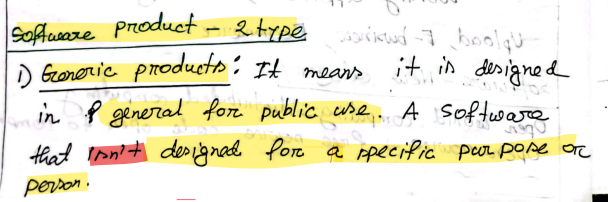 Software product - 2 type
1) Generic products: It means it is designed
in general for public use. A software
that isn't designed for a specific purpose or
person.